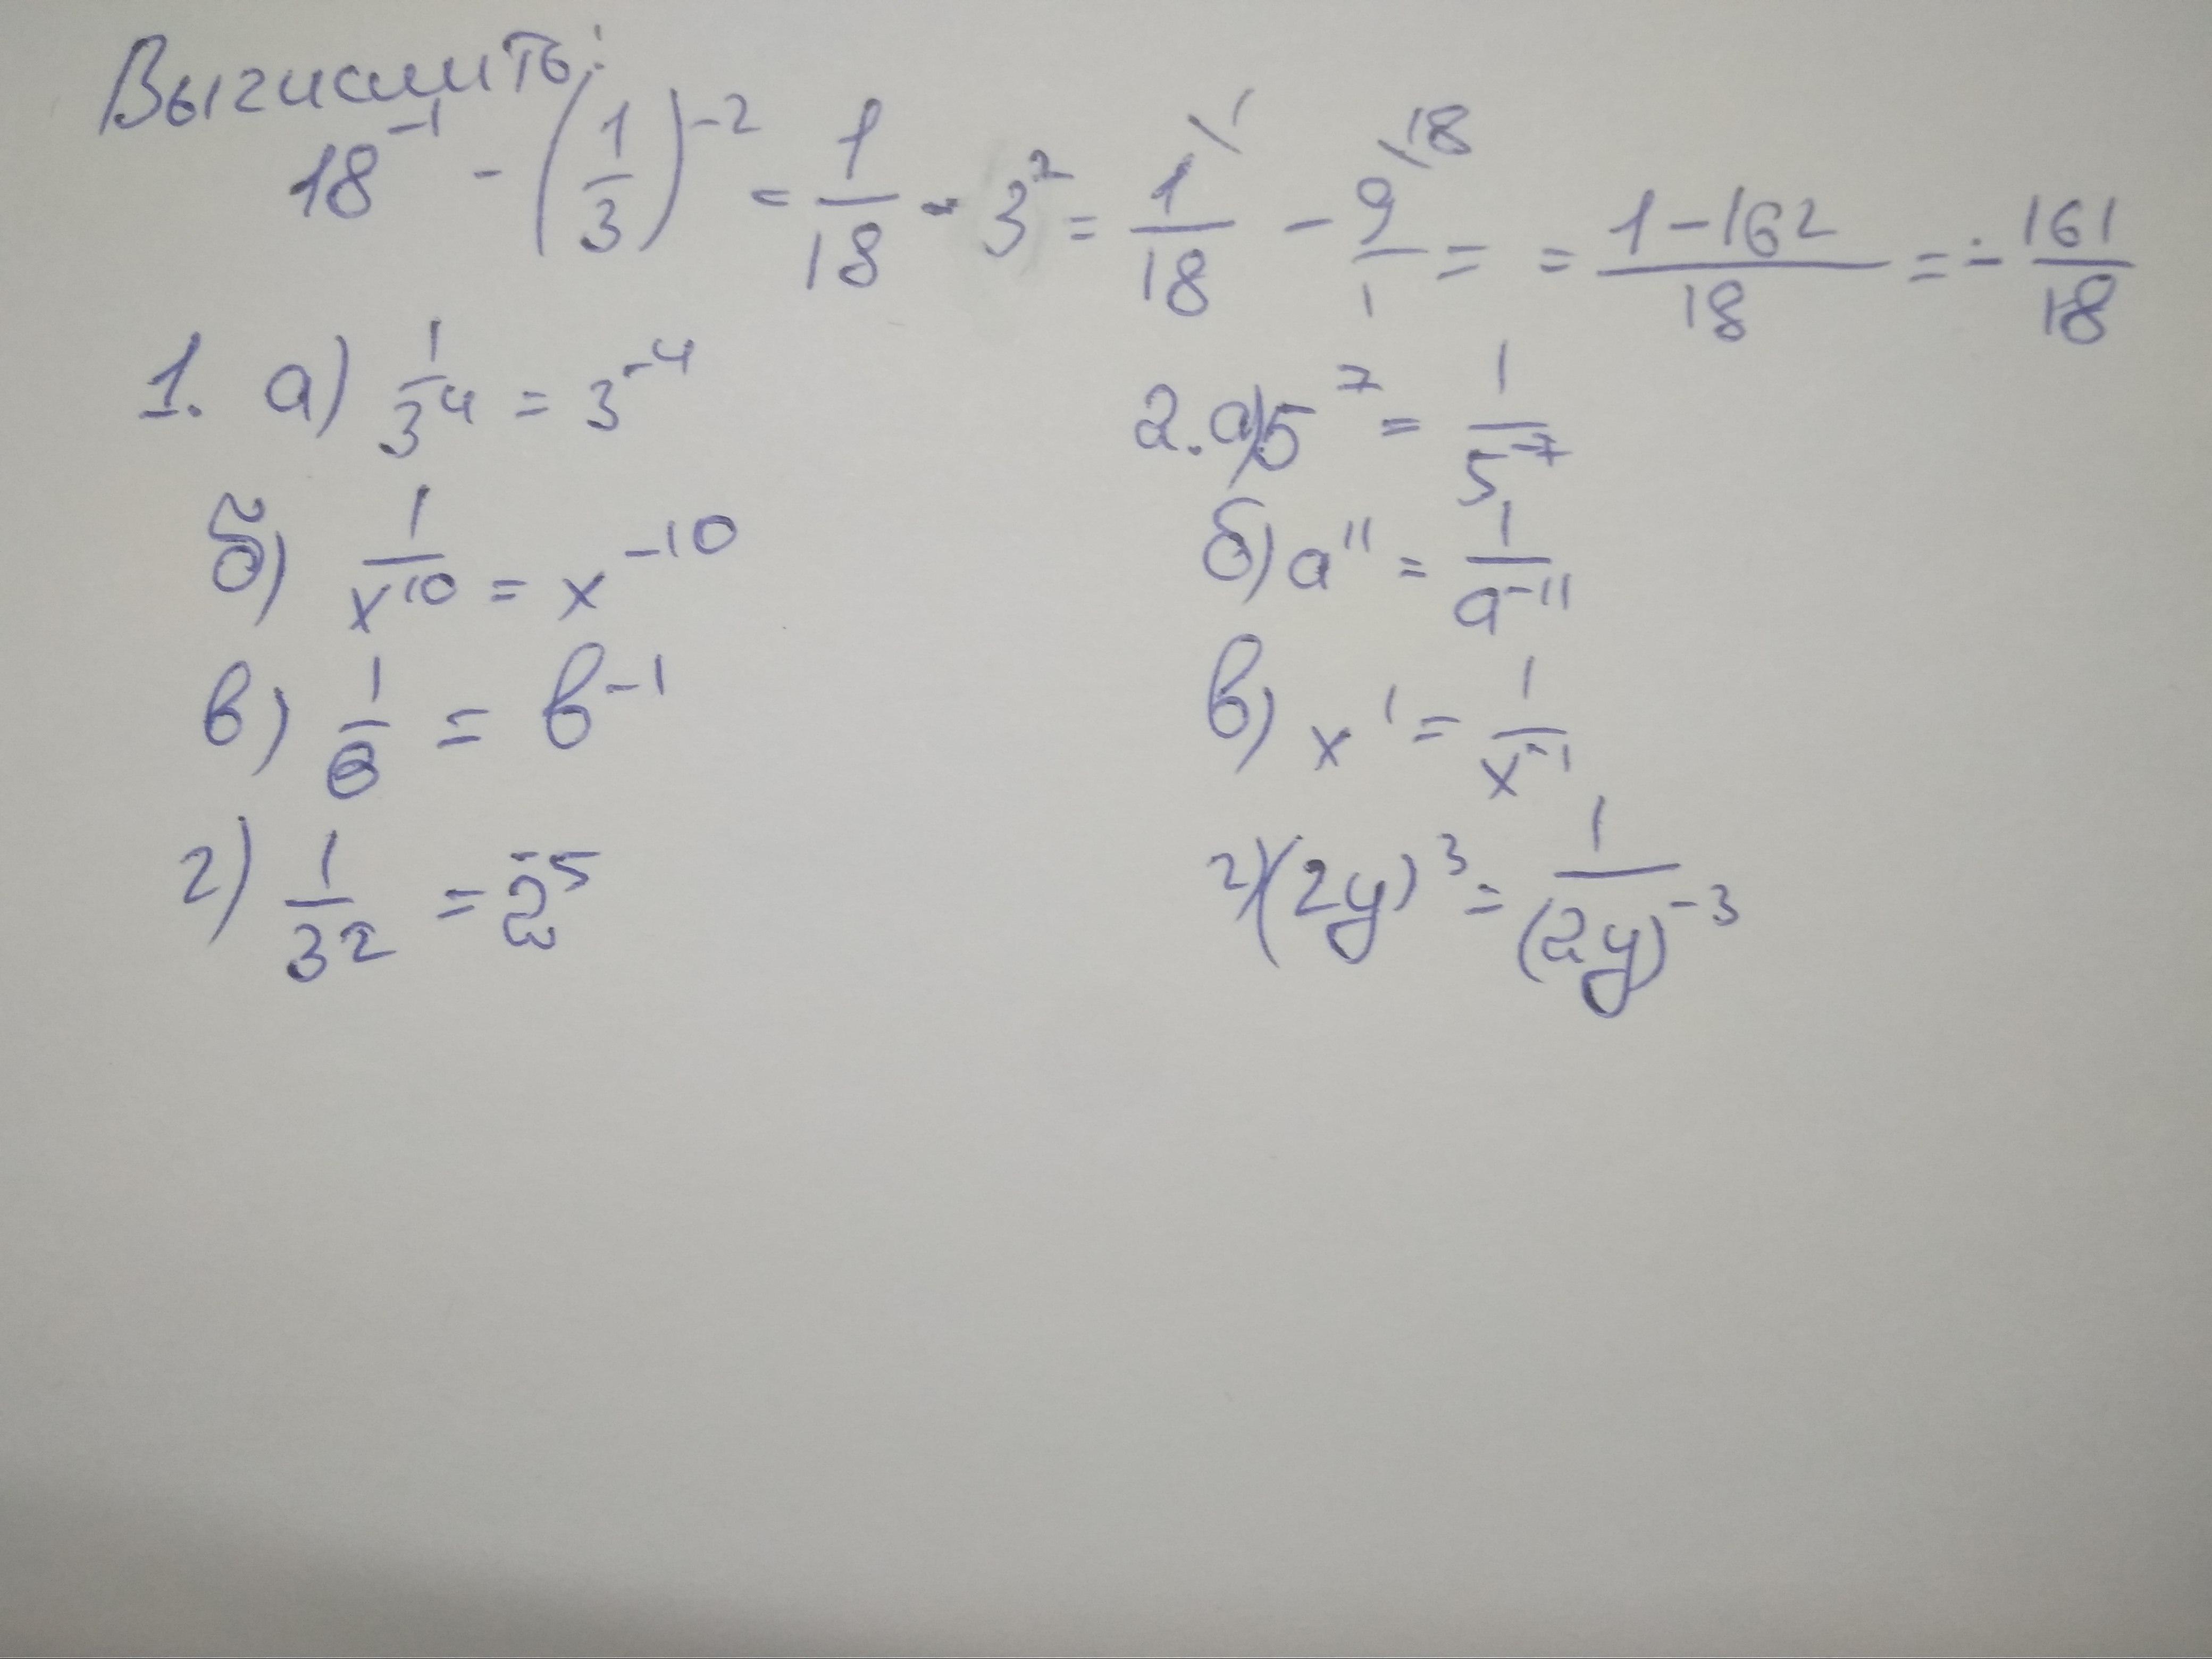 Вычислить:
18⁻¹ - (1/3)⁻² = 1/18 - 3² = 1\¹/18 - 9\¹⁸/1 = = (1-162)/18 = - 161/18
1. а) 1/3⁴ = 3⁻⁴
б) 1/x¹⁰ = x⁻¹⁰
в) 1/в = в⁻¹
г) 1/32 = 2⁻⁵
2. а) 5⁷ = 1/5⁻⁷
б) a¹¹ = 1/a⁻¹¹
в) x¹ = 1/x⁻¹
г) (2y)³ = 1/(2y)⁻³